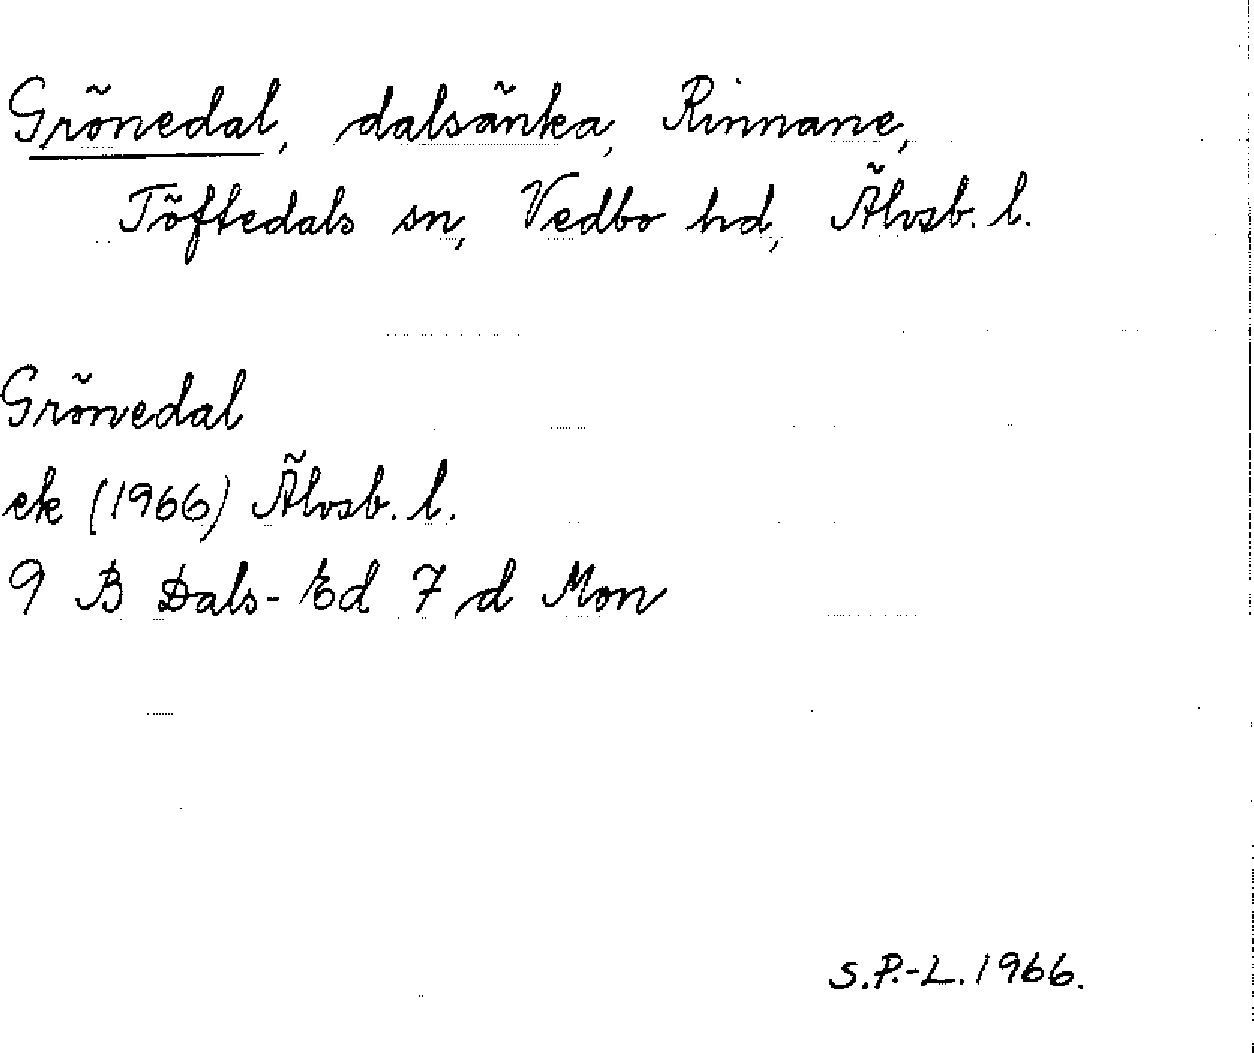 Grönedal, dalsänka, Rinnane,
Töftedals sn, Vedbo hd, Älvsb. l.
Grönedal
ek (1966) Älvsb. l.
9 B Dals-Ed 7 d Mon
S.P.-L. 1966.